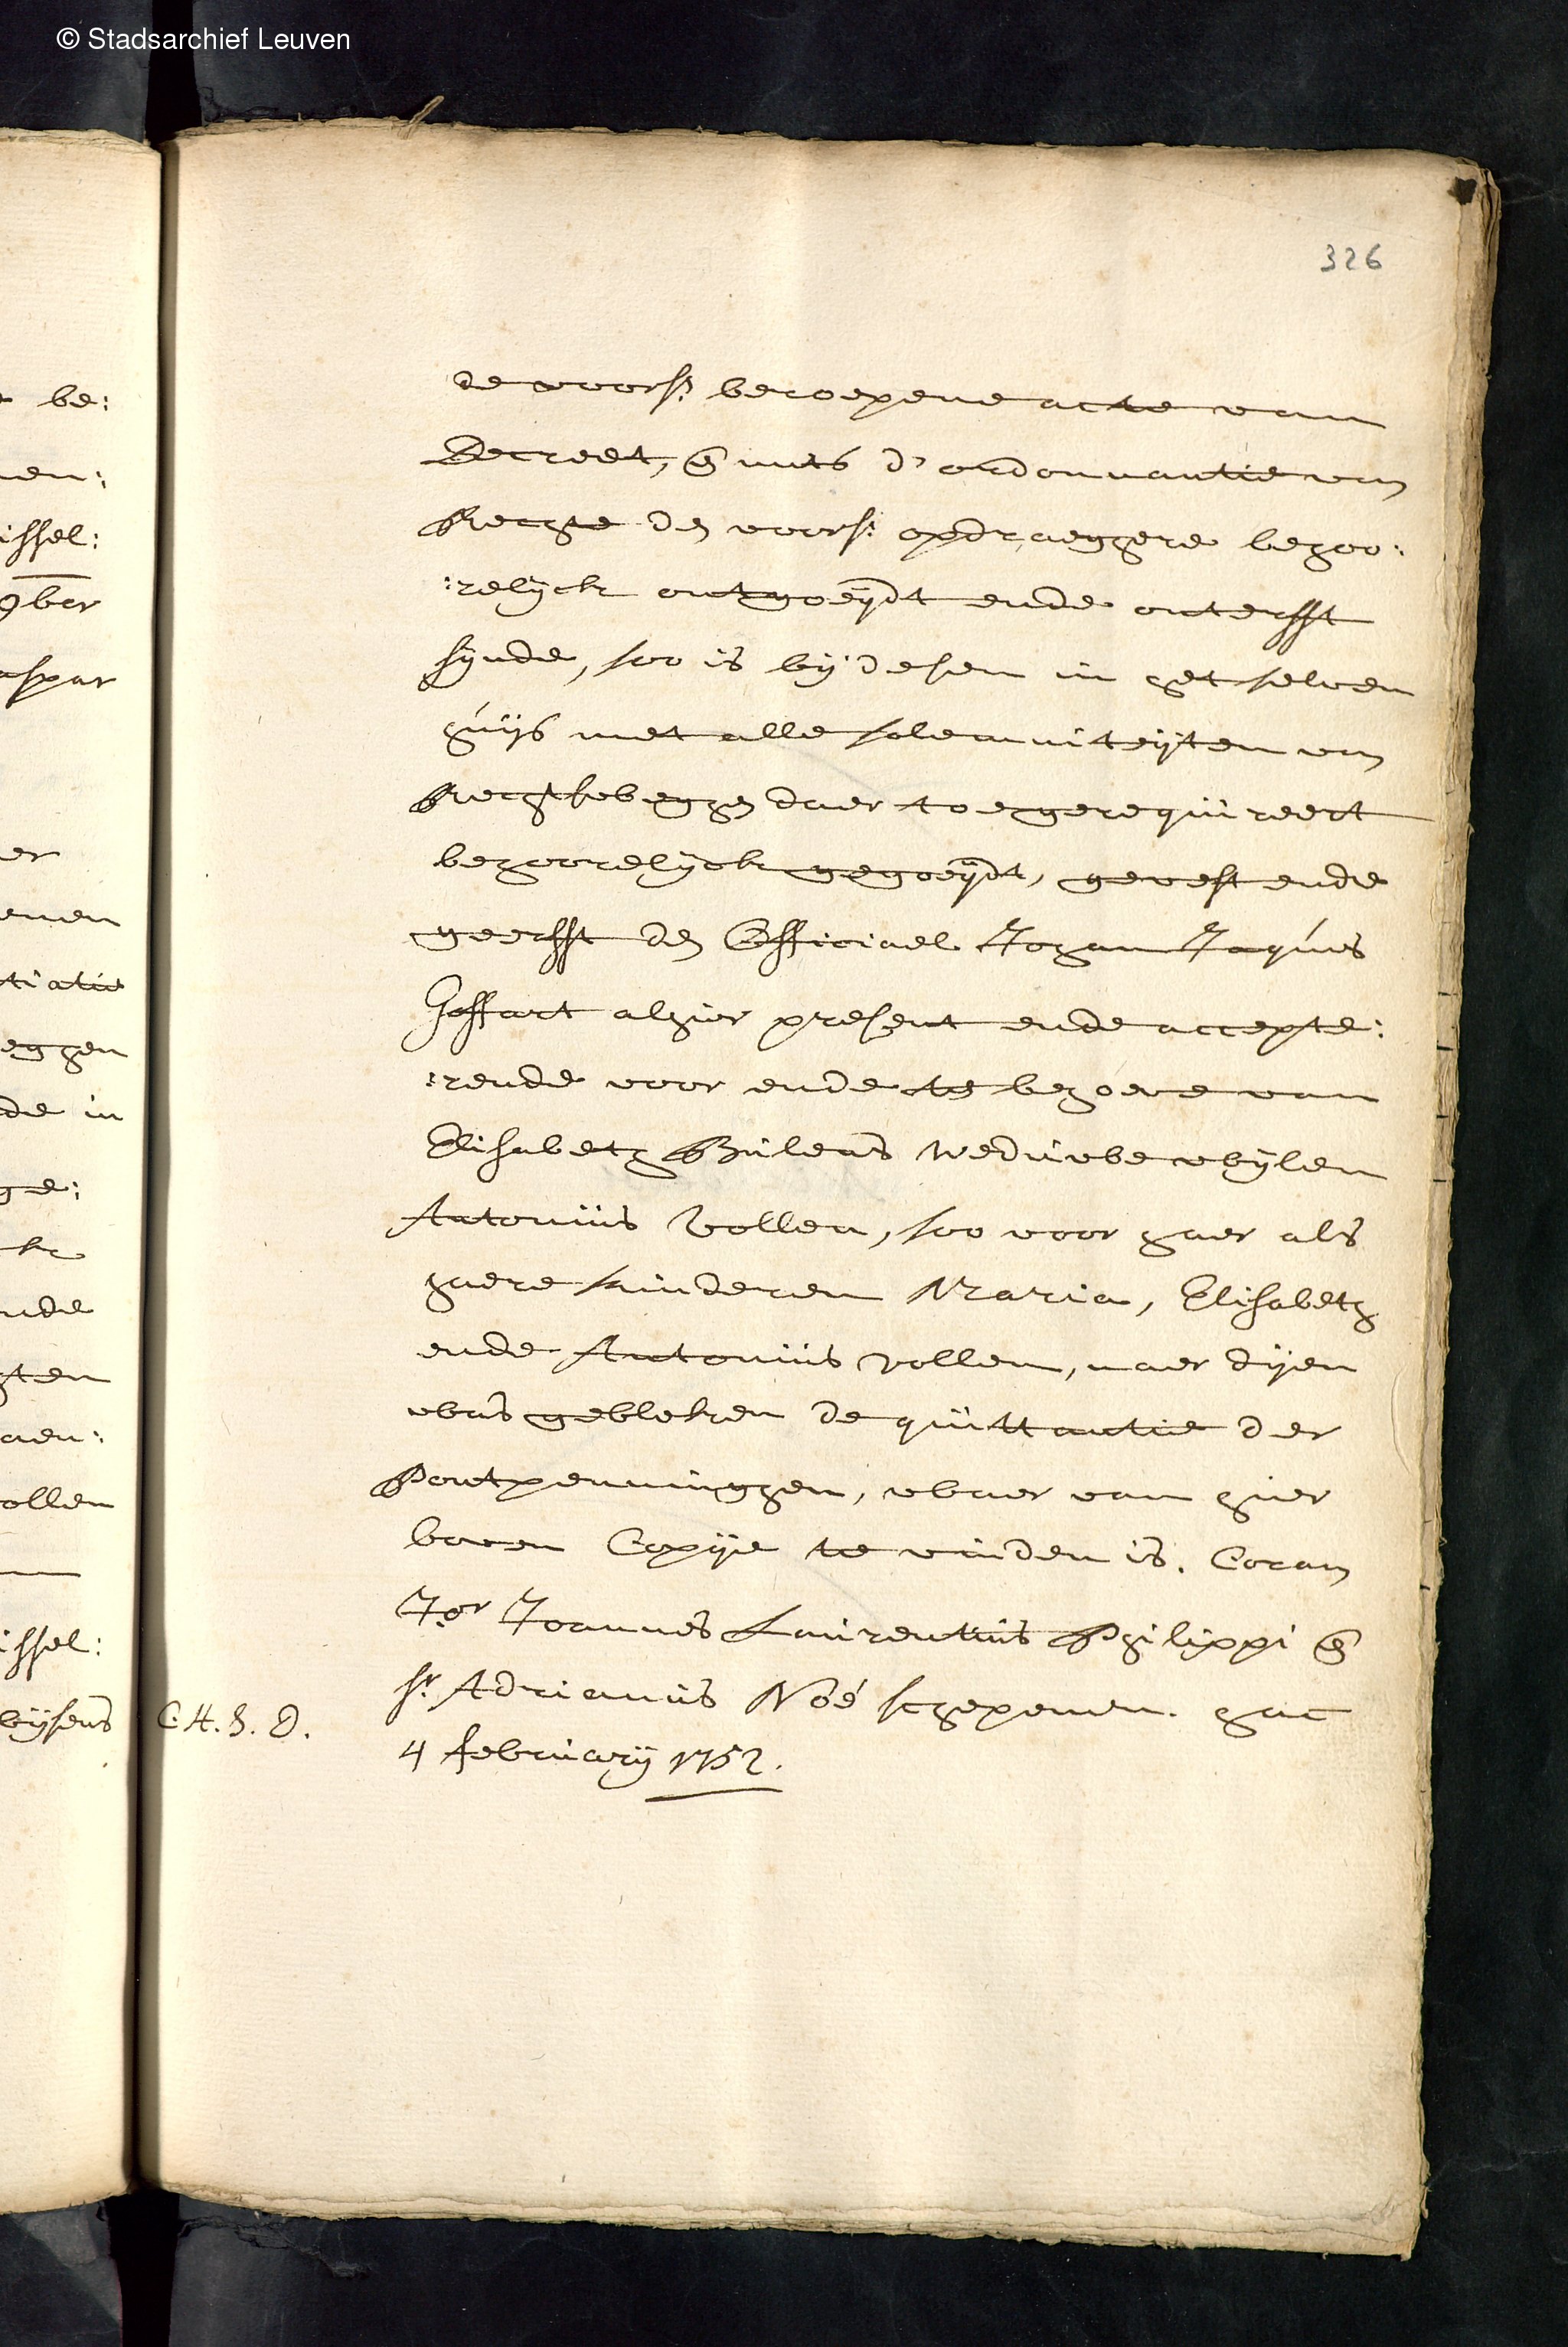 © Stadsarchief Leuven
326
be:
nen:
issel:
9ber
aspar
er
emen
tiatie
eggen
de in
ge:
nde
gten
aen:
ollen
issel:
bijsens
de voors: beroepene acte van
Decreet, en mits d'ordonnantie van
Rechte den voors: opdraeggere behoo:
:relijck ontgoeijdt ende onterfft
sijnde, soo is bij desen in het selven
huijs met alle solemniteijten van
Rechtsweghen daer toe gerequireert
behoorelijck gegoeijdt, gevest ende
geerfft den Officiael Johan Jaques
Goffart alhier present ende accepte:
:rende voor ende te behoeve van
Elisabeth Bulens weduwe wijlen
Antonius Vollen, soo voor haer als
haere kinderen Maria, Elisabeth
ende Antonius Vollen, naer dijen
was gebleken de quittantie der
Pontpenninggen, waer van hier
boven Copije te vinden is. Coram
Jor Joannes Laurentius Philippi en
sr Adrianus Noé schepenen. hac
C.H.S.D.
4 februarij 1752.